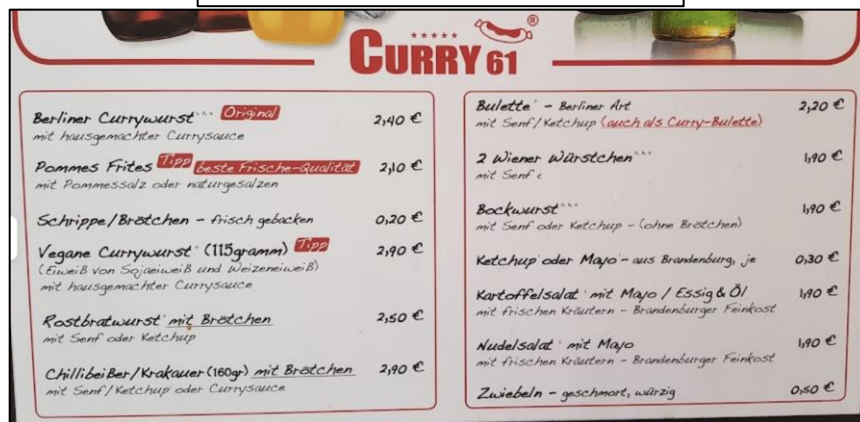 CURRY 61 ®
Berliner Currywurst Original 2,40 €
mit hausgemachter Currysauce
Pommes Frites Tipp beste Frische-Qualität 2,10 €
mit Pommessalz oder naturgesalzen
Schrippe/Brötchen – frisch gebacken 0,20 €
Vegane Currywurst (115gramm) Tipp 2,90 €
(Eiweiß von Sojaeiweiß und Weizeneiweiß)
mit hausgemachter Currysauce
Rostbratwurst mit Brötchen 2,50 €
mit Senf oder Ketchup
Chillibeißer/Krakauer (160gr) mit Brötchen 2,90 €
mit Senf/Ketchup oder Currysauce
Bulette – Berliner Art 2,20 €
mit Senf/Ketchup (auch als Curry-Bulette)
2 Wiener Würstchen 1,90 €
mit Senf
Bockwurst 1,90 €
mit Senf oder Ketchup – (ohne Brötchen)
Ketchup oder Mayo – aus Brandenburg, je 0,30 €
Kartoffelsalat mit Mayo / Essig & Öl 1,90 €
mit frischen Kräutern – Brandenburger Feinkost
Nudelsalat mit Mayo 1,90 €
mit frischen Kräutern – Brandenburger Feinkost
Zwiebeln – geschmort, würzig 0,50 €